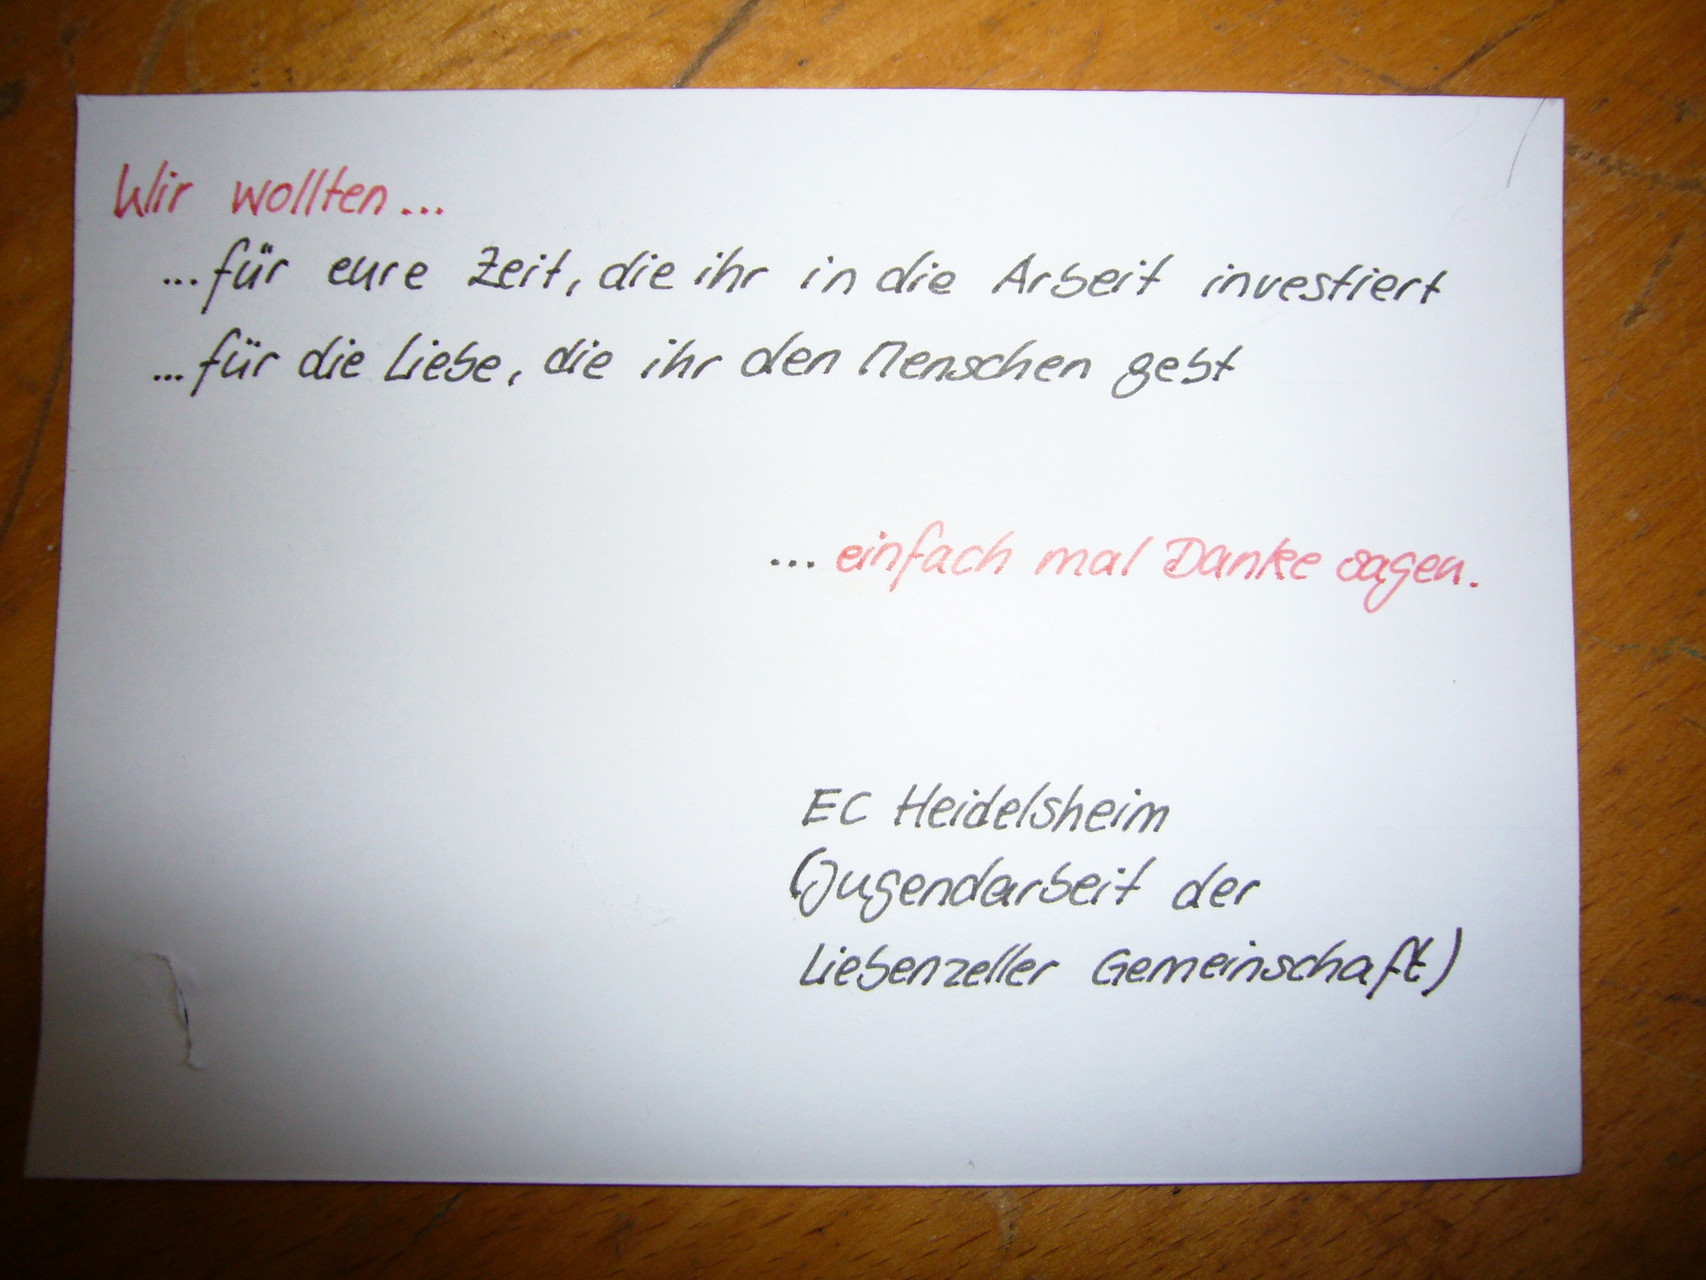 Wir wollten...
...für eure Zeit, die ihr in die Arbeit investiert
...für die Liebe, die ihr den Menschen gebt
... einfach mal Danke sagen.
EC Heidelsheim
(Jugendarbeit der
Liebenzeller Gemeinschaft)